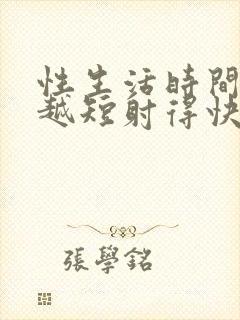 性生活時間
越短射得快
張學銘